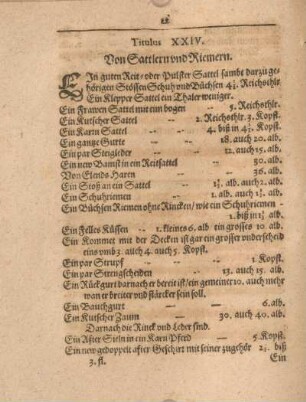 12
Titulus XXIV.
Von Sattlern vnd Riemern.
EIn guten Reit- oder Pulster Sattel sambt darzu ge-
hörigen Stössen Schuh vnd Büchsen 4½. Reichsthlr.
Ein Klepper Sattel ein Thaler weniger.
Ein Frawen Sattel mit ein bogen -- 5. Reichsthlr.
Ein Kutscher Sattel -- 2. Reichsthlr. 3. Kopst.
Ein Karrn Sattel -- 4. biß in 4½. Kopst.
Ein gantze Gurte -- 18. auch 20. alb.
Ein par Steigleder -- 12. auch 15. alb.
Ein new Bawst in ein Reitsattel -- 30. alb.
Von Elends Haren -- 36. alb.
Ein Stoß an ein Sattel -- alb. auch 2. alb.
Ein Schuhriemen -- 1. alb. auch 1½. alb.
Ein Büchsen Riemen ohne Rincken / wie ein Schuhriemen
1. biß in 1½ alb.
Ein Felles Küssen -- 1. kleines 6. alb ein grosses 10. alb.
Ein Kommet mit der Decken ist gar ein grosser vnderscheid
eins vmb 3. auch 4. auch 5. Kopst.
Ein par Strupf -- 1. Kopst.
Ein par Strengscheiden -- 13. auch 15. alb.
Ein Rückgurt darnach er bereit ist / ein gemeiner 10. auch mehr
wan er breiter vnd stärcker sein soll.
Ein Bauchgurt -- 6. alb.
Ein Kutscher Zaum -- 30. auch 40. alb.
Darnach die Rinck vnd Leder sind.
Ein After Sieln in ein Karn Pferd -- 5. Kopst.
Ein new gedoppelt after Geschirr mit seiner zugehör 2½. biß
3. fl. Ein